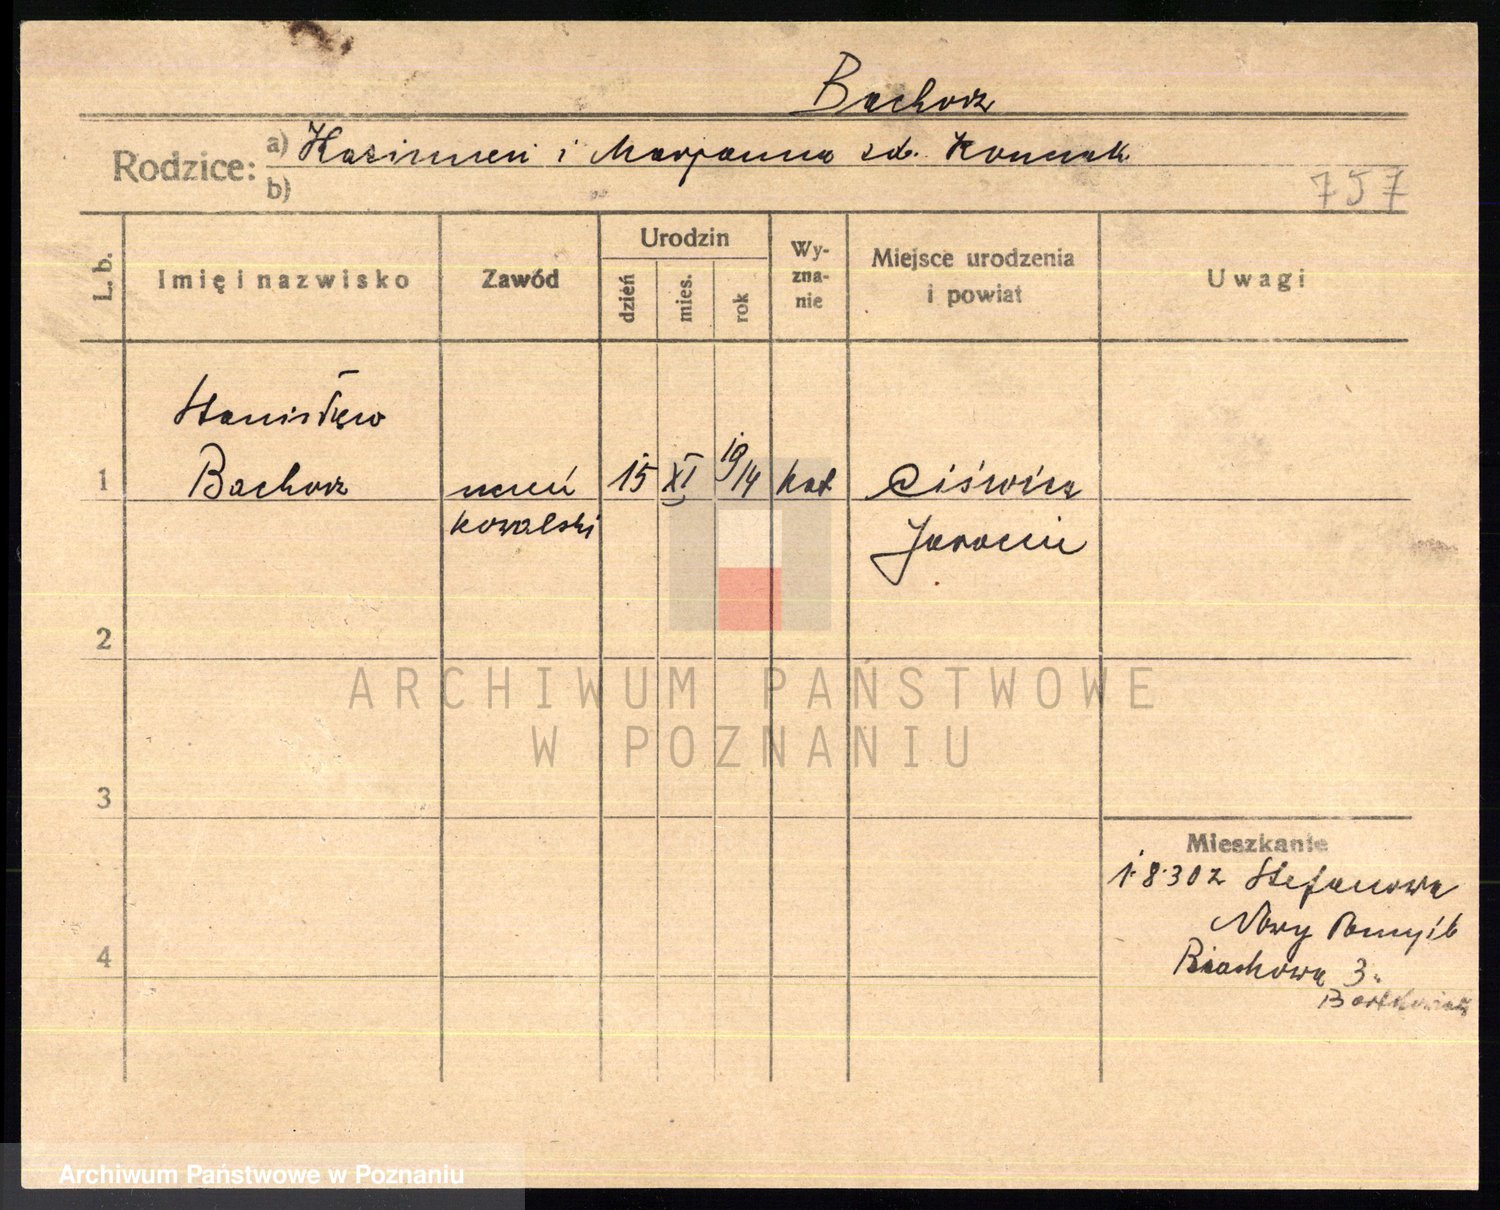 Bachorz
Rodzice: a) Kazimierz i Marjanna zd.
b)
757
L. b.
Imię i nazwisko
Zawód
Urodzin
dzień
mies.
rok
Wy-
zna-
nie
Miejsce urodzenia
i powiat
Uwagi
Stanisław
1 Bachorz uczeń 15 XI 19/14 kat Ciświca
kowalski Jarocin
2
ARCHIWUM PAŃSTWOWE
W POZNANIU
3
Mieszkanie
1.8.30 z Stefanowa
Nowy Tomyśl
4
3.
Archiwum Państwowe w Poznaniu